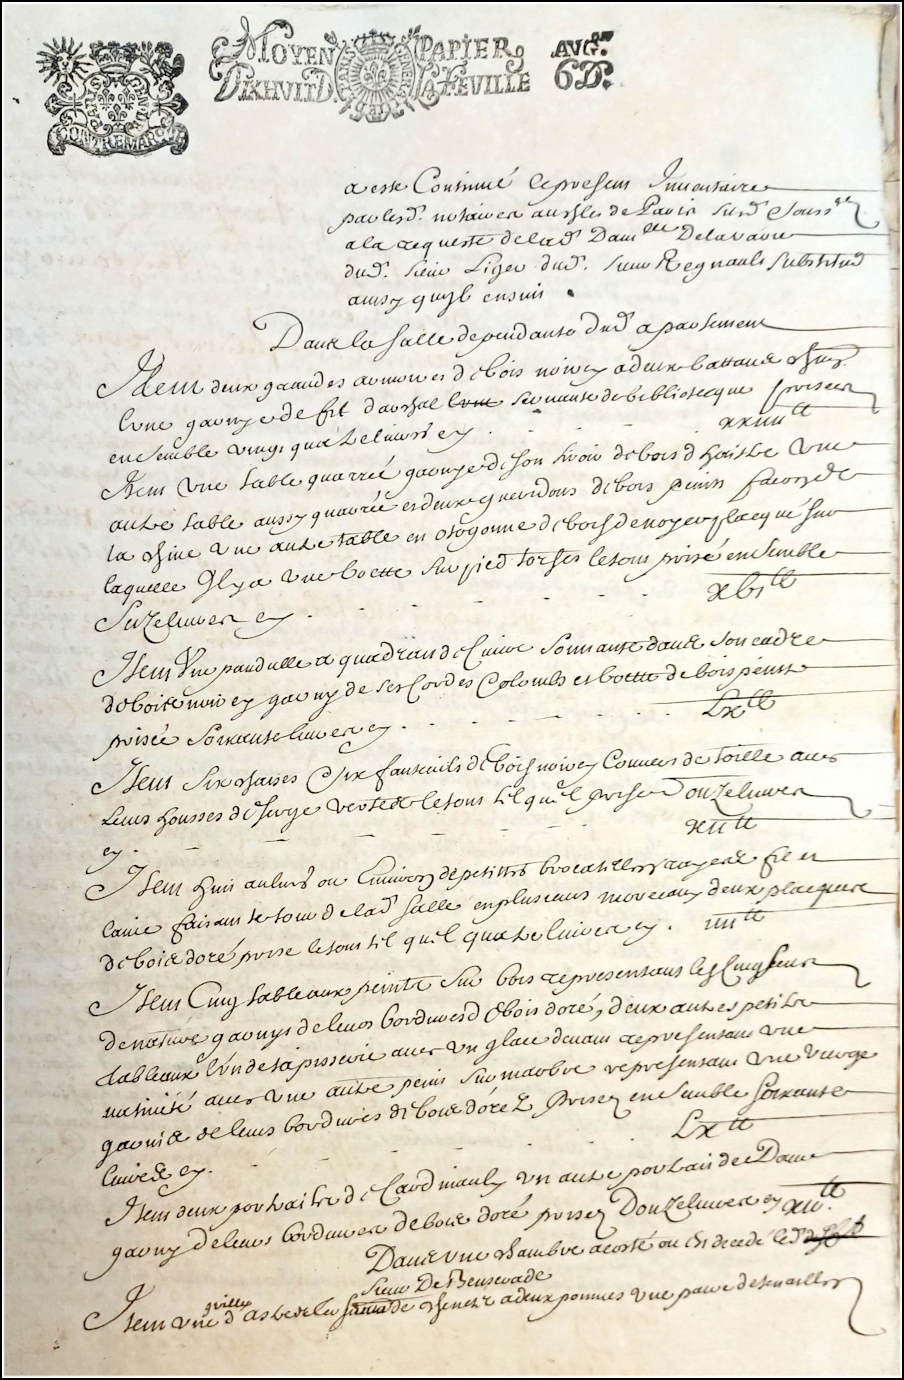 MOYEN PAPIER AVG.on
DIXHVIT D. LA FEVILLE 6 D.
CONTREMARQVE
a esté Continué le present Inventaire
par lesd. notaires au Chlet de Paris sur.d Souss.nez
a la requeste de lad. Dam.lle Delavavre
dud. sieur Liger dud. sieur Regnault Substitud
aussy quil ensuit
Dans la salle dependante dud apartement
Item deux grandes armoires de bois noircy a deux battans
l'une garnye de fil d'archal servante de bibliotecque prisée
ensemble vingt quatre livres cy . . . xxiiii lt
Item une table quarrée garnye de son tiroir de bois d'haistre une
autre table aussy quarrée et deux gueridons de bois peint facon de
la chine une autre table en octogonne de bois de noyer placqué sur
laquelle Il y a une boette sur pied torses le tout prisé ensemble
Seize livres cy . . . xvi lt
Item Une pandulle a quadran de Cuivre sonnante dans son cadre
de bois noircy garny de ses Cordes Colombs et boette de bois peint
prisée Soixante livres cy . . . Lx lt
Item Six chaises Six fauteuils de bois noircy Couvers de toille avec
leurs housses de serge verte le tout tel quel prisé Douze livres
cy . . . xii lt
Item huit aulnes ou Environ de petittes brocatelles rayeez fil et
laine faisant le tour de lad salle en plusieurs morceaux deux placques
de bois doré prisé le tout tel quel quatre livres cy . iiii lt
Item Cinq tableaux peints sur bois representans les Cinq sens
de nature garnys de leurs bordures de bois doré, deux autres petits
tableaux l'un de tapisserie avec un glace devant representant une
nativité avec une autre peint sur marbre representant une vierge
garnis de leurs bordures de bois doré Prisez ensemble Soixante
livres cy . . . Lx lt
Item deux portraits de Cardinaulx un autre portrait de Dame
garny de leurs bordures de bois doré prisez Douze livres cy xii lt
Dans une chambre a costé ou Est decedé led.
Sieur De Benserade
Item une grille d'astre de la de chenetz a deux pommes une paire de tenailles